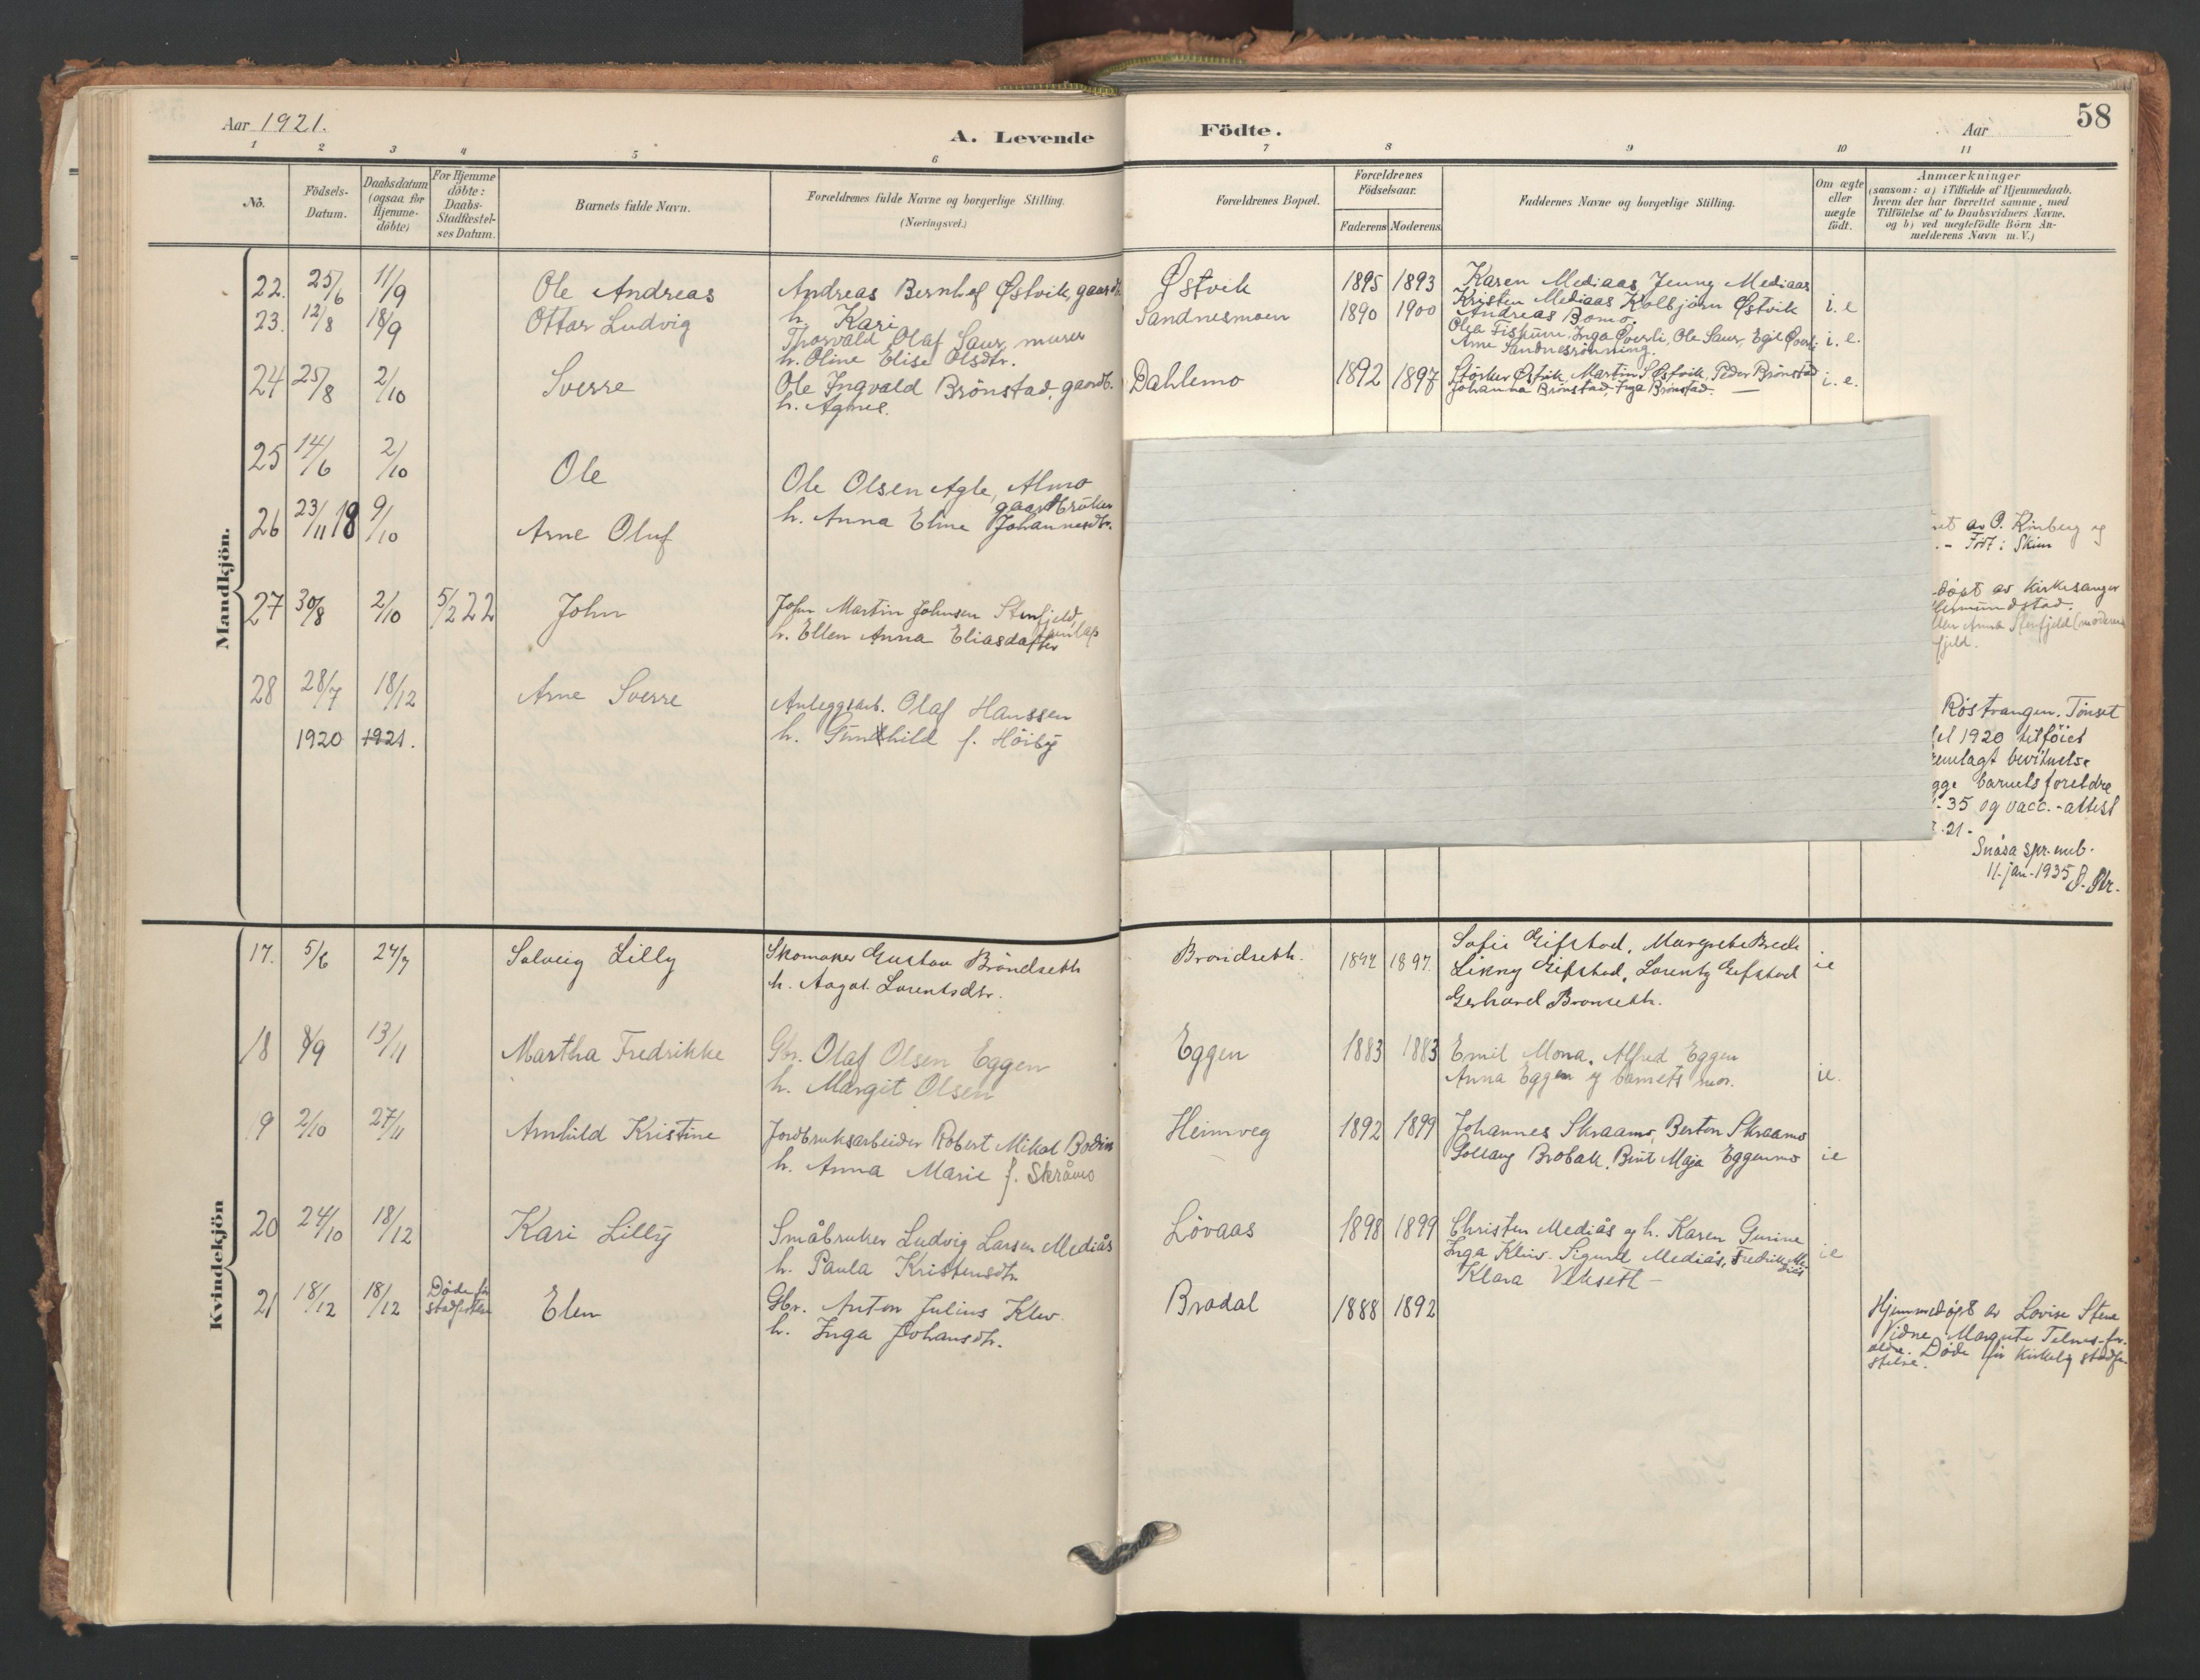 Aar 1921.
A. Levende
Födte.
Aar
58
1 2 3 4 5 6 7 8 9 10 11
No.
Födsels-
Datum.
Daabsdatum
(ogsaa for
Hjemme-
döbte)
For Hjemme
döbte:
Daabs-
Stadfæstel-
ses Datum.
Barnets fulde Navn.
Forældrenes fulde Navne og borgerlige Stilling.
(Næringsvei.)
Forældrenes Bopæl.
Forældrenes
Födselsaar.
Faderens Moderens
Faddernes Navne og borgerlige Stilling.
Om ægte
eller
uægte
födt.
Anmærkninger
(saasom: a) i Tilfælde af Hjemmedaab,
hvem der har forrettet samme, med
Tilföielse af to Daabsvidners Navne,
og b) ved uægtefödte Börn An-
melderens Navn m. V.)
Mandkjön.
22. 25/6 11/9 Ole Andreas
Andreas Bernhof Østvik, gaardb.
h. Kari
Østvik 1895 1893
Karen Mediaas Jenny Mediaas
Kristen Mediaas Kolbjörn Østvik
Andreas Bomo,
i. e
23. 12/8 18/9 Ottar Ludvig
Thorvald Olaf Saur, murer
h. Oline Elise Olsdtr.
Sandnesmoen 1890 1900
Olea Fiskum, Inga Överli, Ole Saur, Egil Överli
Arne Sandnesrönning.
i. e.
24 25/8 2/10 Sverre
Ole Ingvald Brönstad, gaardb.
h. Agnes.
Dahlemo 1892 1897
Störker Østvik, Martin S Østvik, Peder Brönstad
Johanna Brönstad, Inga Brönstad. —
i. e.
25 14/6 2/10 Ole
Ole Olsen Agle, Almo
gaardbruker
h. Anna Eline Johannesdtr.
26 23/11 18 9/10 Arne Oluf
av O. Kinberg og
- Født i Skien
27 30/8 2/10 5/2 22 John
John Martin Johnsen Stenfjeld,
h. Ellen Anna Eliasdatter
döpt av Kirkesanger
Anna Stenfjeld (moderen
fjeld.
28 28/7 18/12 Arne Sverre
1920 1921.
Anleggsarb. Olaf Hanssen
h. Gunhild f. Höiby
Röstvangen, Tönset
1920 tilföiet
fremlagt bevitnelse
barnets foreldre
35 og vacc.-attest
21-
Snåsa spr. emb.
11. jan. 1935
Kvindekjön
17. 5/6 24/7 Solveig Lilly
Skomaker Gustav Bröndseth
h. Aagot Lorentsdtr.
Bröndseth. 1894 1897.
Sofie Gifstad, Margrete Brede
Linny Gifstad, Lorentz Gifstad
Gerhard Bronseth.
ie
18 8/9 13/11 Martha Fredrikke
Gbr. Olaf Olsen Eggen
h. Margit Olsen
Eggen 1883 1883
Emil Mona, Alfred Eggen
Anna Eggen og barnets mor.
ie.
19 2/10 27/11 Arnhild Kristine
Jordbruksarbeider Robert Mikal Bodin
h. Anna Marie f. Skråmo
Heimveg 1892 1899
Johannes Skraamo, Berton Skraamo
Solläug Brobak, Berit Maja Eggenmo
ie
20 24/10 18/12 Kari Lilly
Småbruker Ludvig Larsen Mediås
h. Paula Kristensdtr
Lövaas 1898 1899
Christen Mediås og h. Karen Gurine
Inga Kleiv. Sigurd Mediås, Fredrik Mediås
Klara Vekseth -
ie
21 18/12 18/12 Døde før
stadfestelse
Elen
Gbr. Anton Julius Klev
h. Inga Johansdtr.
Bradal 1888 1892
Hjemmedøpt av Lovise Stene
Vidne Margrete Telnes- for-
eldre. Døde før kirkelig stadfe-
stelse.